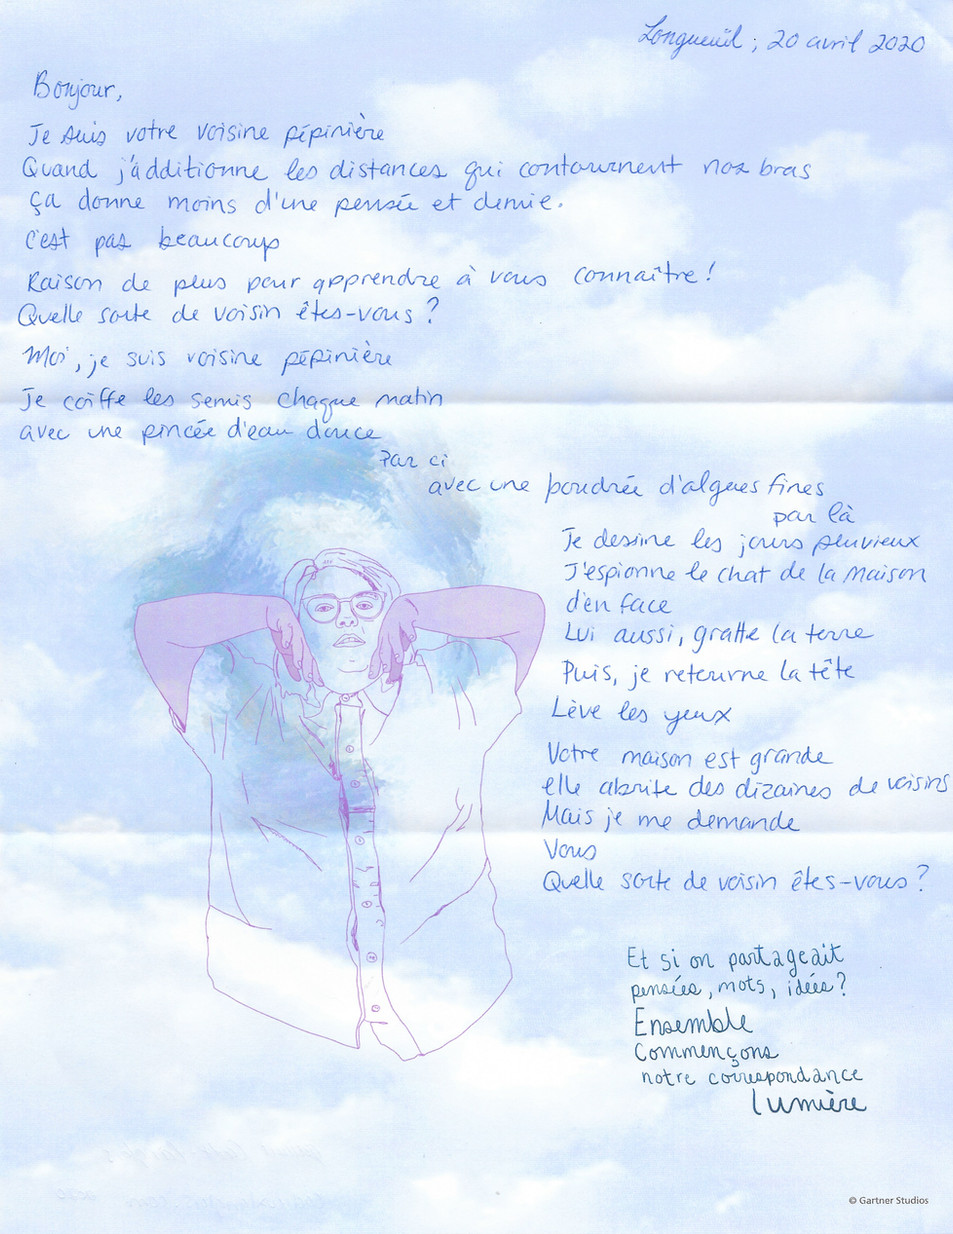 Longueuil, 20 avril 2020
Bonjour,
Je suis votre voisine pépinière
Quand j'additionne les distances qui contournent nos bras
ça donne moins d'une pensée et demie.
C'est pas beaucoup
Raison de plus pour apprendre à vous connaître!
Quelle sorte de voisin êtes-vous?
Moi, je suis voisine pépinière
Je coiffe les semis chaque matin
avec une pincée d'eau douce
Par ci
avec une poudrée d'algues fines
par là
Je dessine les jours pluvieux
J'espionne le chat de la maison
d'en face
Lui aussi, gratte la terre
Puis, je retourne la tête
Lève les yeux
Votre maison est grande
elle abrite des dizaines de voisins
Mais je me demande
Vous
Quelle sorte de voisin êtes-vous?
Et si on partageait
pensées, mots, idées?
Ensemble
Commençons
notre correspondance
lumière
© Gartner Studios